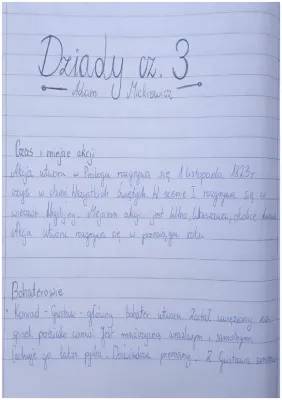 Dziady cz. 3
Adam Mickiewicz
Czas i miejsce akcji
Akcja utworu w Prologu rozgrywa się 1 listopada 1823 r
czyli w dzień Wszystkich Świętych. W scenie I rozgrywa się w
wieczór Wigilijny. Miejscem akcji jest Wilno, Warszawa, okolice
Akcja utworu rozgrywa się w przeciągu roku
Bohaterowie
• Konrad - Gustaw - główny bohater utworu. Został uwięziony
Jest wrażliwym i samotnym
Cechuje go także pycha. Doświadcza przemiany. Z Gustawa